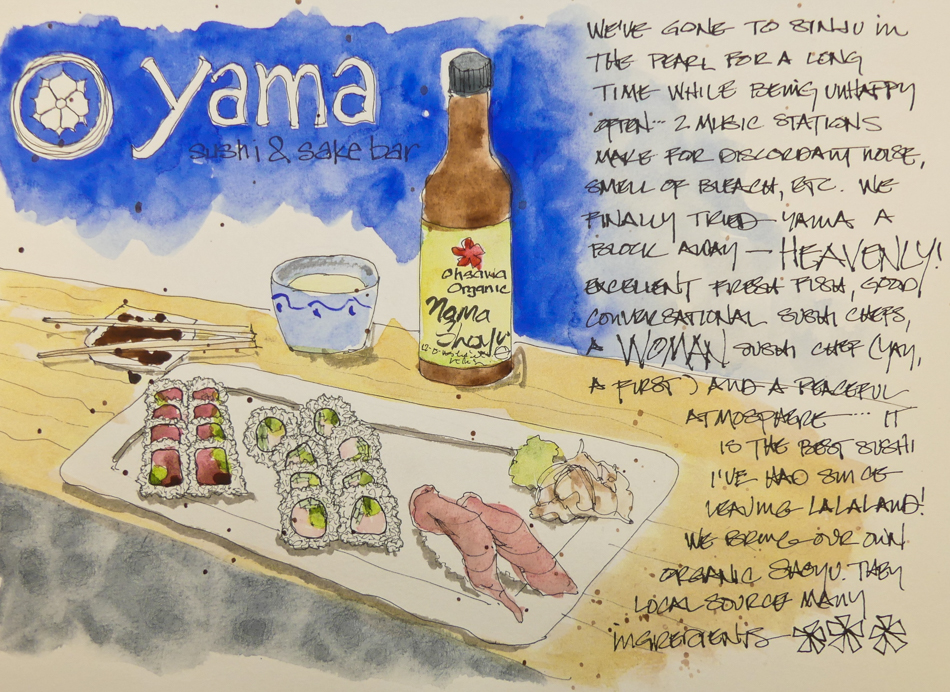 yama
sushi & sake bar
Ohsawa
Organic
Nama
Shoyu
WE'VE GONE TO SINJU in
THE PEARL FOR A LONG
TIME WHILE BEING UNHAPPY
OFTEN... 2 MUSIC STATIONS
MAKE FOR DISCORDANT NOISE,
SMELL OF BLEACH, ETC. WE
FINALLY TRIED YAMA A
BLOCK AWAY — HEAVENLY!
EXCELLENT FRESH FISH, GOOD
CONVERSATIONAL SUSHI CHEFS,
A WOMAN SUSHI CHEF (YAY,
A FIRST) AND A PEACEFUL
ATMOSPHERE.... IT
IS THE BEST SUSHI
I'VE HAD SINCE
LEAVING LALALAND!
WE BRING OUR OWN
ORGANIC SHOYU. THEY
LOCAL SOURCE MANY
INGREDIENTS